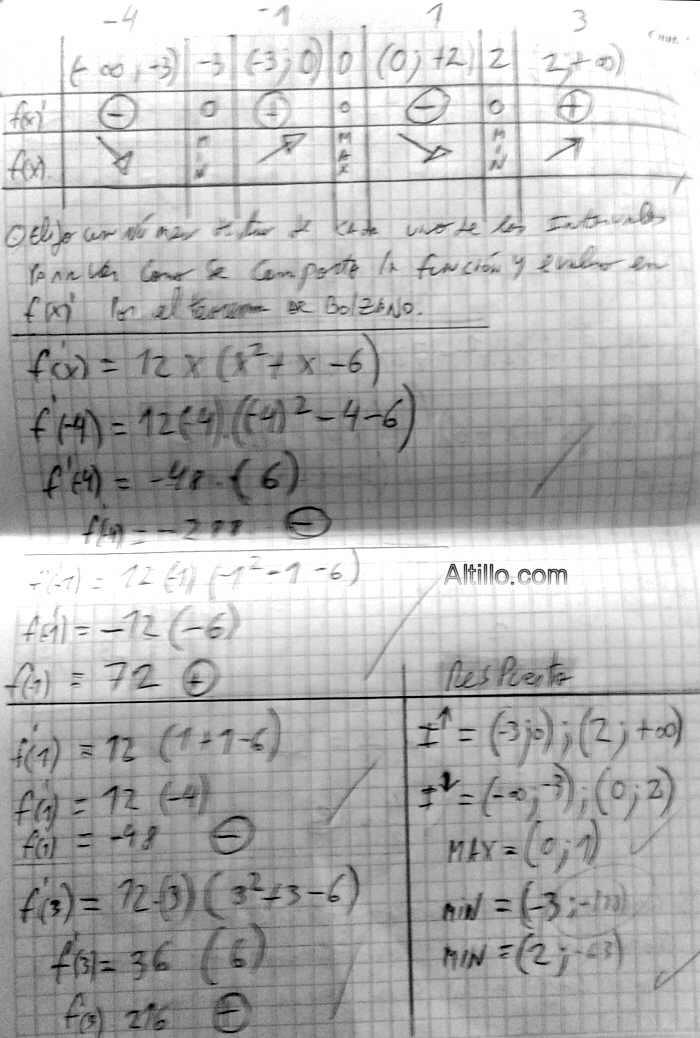 -4 -1 1 3
(-∞; -3) -3 (-3; 0) 0 (0; +2) 2 2; +∞)
f(x)' ⊖ 0 ⊕ 0 ⊖ 0 ⊕
f(x) ↘ MIN ↗ MAX ↘ MIN ↗
Elijo un de cada uno de los Intervalos
Para ver como se comporta la función y evaluo en
f(x)' Por el teorema de BOLZANO.
f'(x) = 12 x (x² + x - 6)
f'(-4) = 12(-4) ((-4)² - 4 - 6)
f'(-4) = -48 · (6)
f'(-4) = -288 ⊖
f'(-1) = 12(-1) (-1² - 1 - 6)
Altillo.com
f'(-1) = -12 (-6)
f(-1) = 72 ⊕
Respuesta
f'(1) = 12 (1+1-6)
I↑ = (-3;0) ; (2; +∞)
f'(1) = 12 (-4)
f(1) = -48 ⊖
I↓ = (-∞; -3) ; (0; 2)
MAX = (0; 1)
f'(3) = 12·(3) (3²+3-6)
MIN = (-3;
f'(3) = 36 (6)
MIN = (2; -63)
f'(3) 216 ⊕